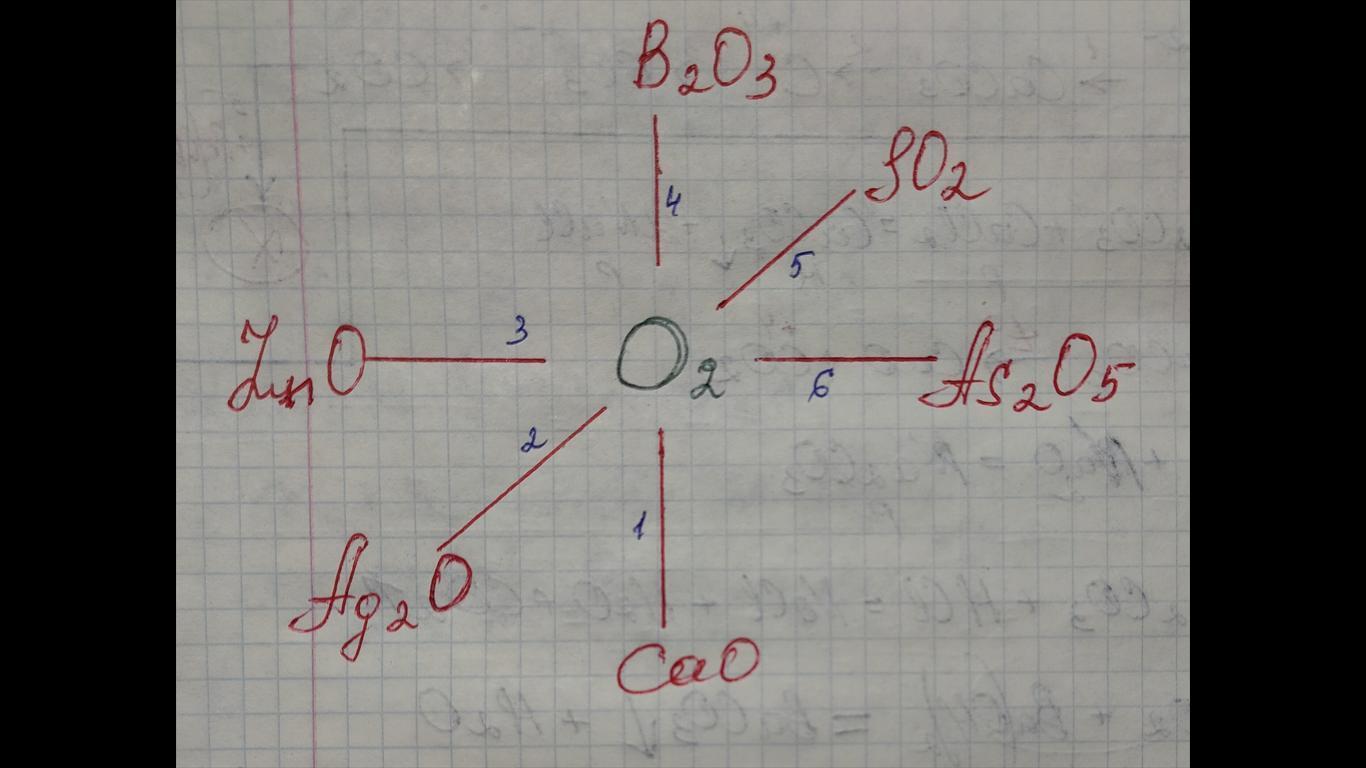 B₂O₃
SO₂
4
5
ZnO
3
O₂
6
As₂O₅
2
1
Ag₂O
CaO